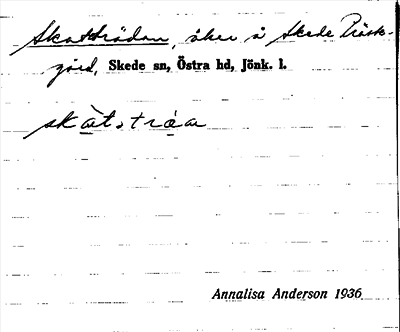 Skattträdan, åker å Skede Präst-
gård, Skede sn, Östra hd, Jönk. l.
skàt,tràa
Annalisa Anderson 1936